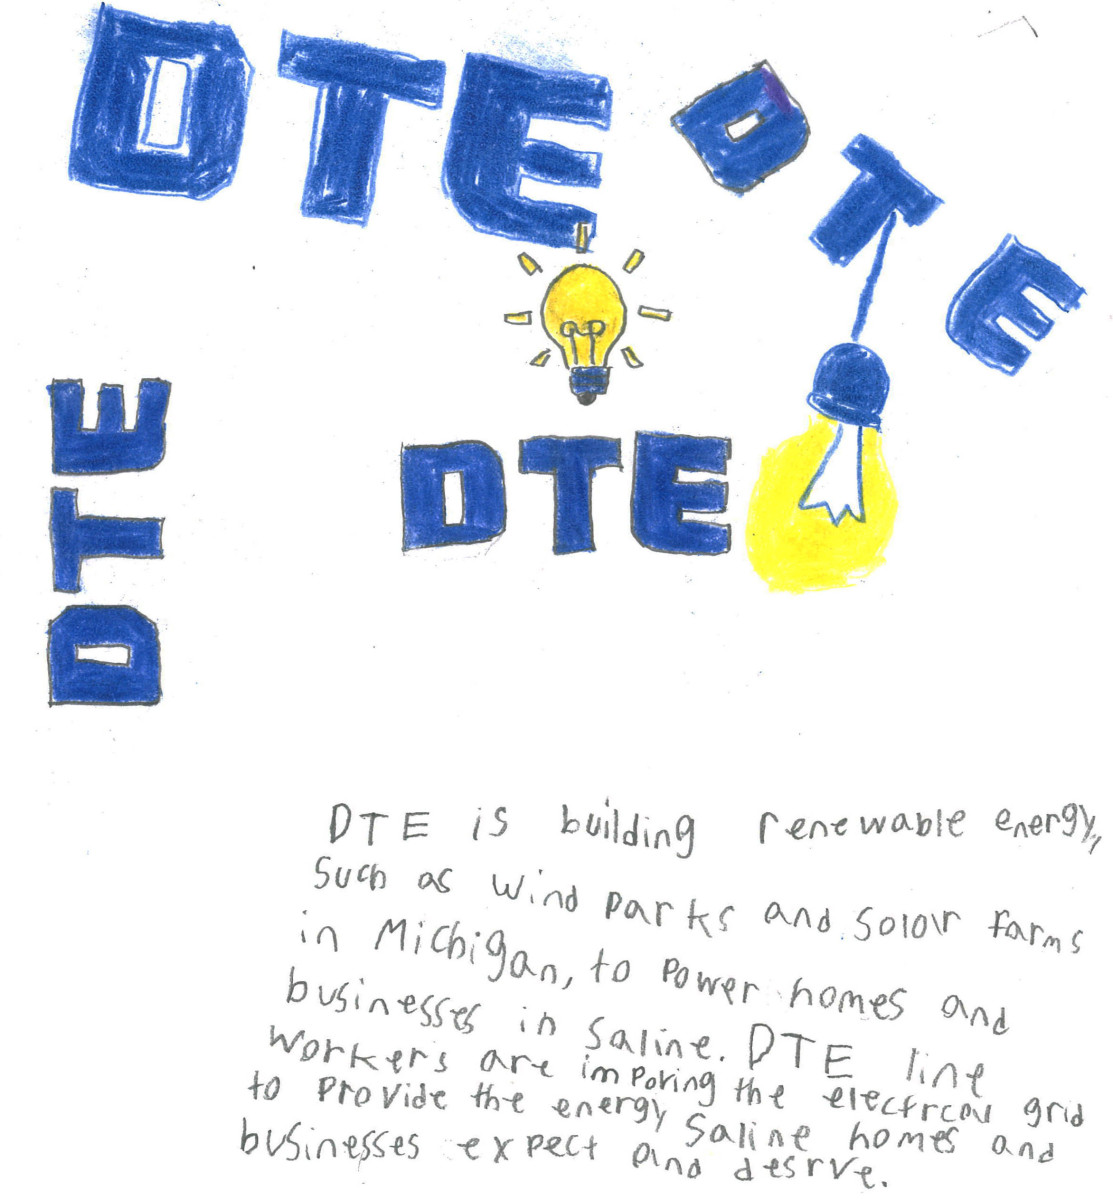 DTE
DTE
DTE
DTE
DTE is building renewable energy,
such as wind parks and solar farms
in Michigan, to power homes and
businesses in saline. DTE line
workers are imporing the electrcal grid
to provide the energy saline homes and
businesses expect and desrve.